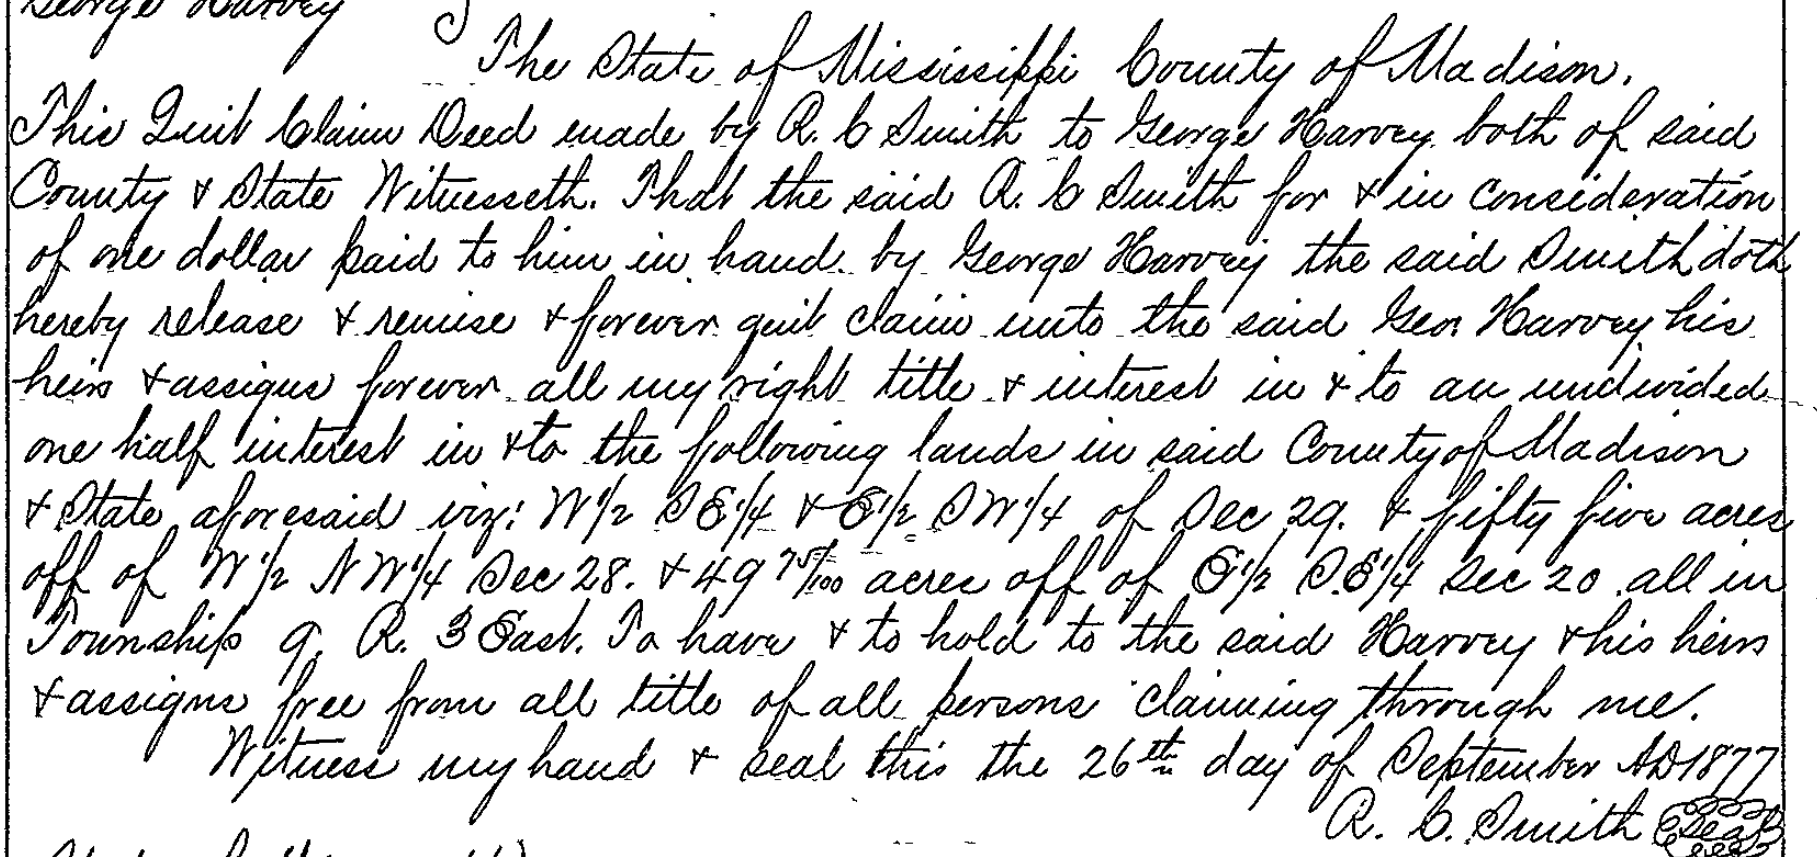 George Harvey
The State of Mississippi County of Madison.
This Quit Claim Deed made by R. C Smith to George Harvey both of said
County & State Witnesseth. That the said R. C Smith for & in consideration
of one dollar paid to him in hand by George Harvey the said Smith doth
hereby release & remise & forever quit claim unto the said Geo. Harvey his
heirs & assigns forever all my right title & interest in & to an undivided
one half interest in & to the following lands in said County of Madison
& State aforesaid viz: W 1/2 S E 1/4 & E 1/2 S W 1/4 of Sec 29. & fifty five acres
off of W 1/2 N W 1/4 Sec 28. & 49 75/100 acres off of E 1/2 S. E 1/4 Sec 20 all in
Township 9. R. 3 East. To have & to hold to the said Harvey & his heirs
& assigns free from all title of all persons claiming through me.
Witness my hand & seal this the 26th day of September AD 1877
R. C. Smith Seal